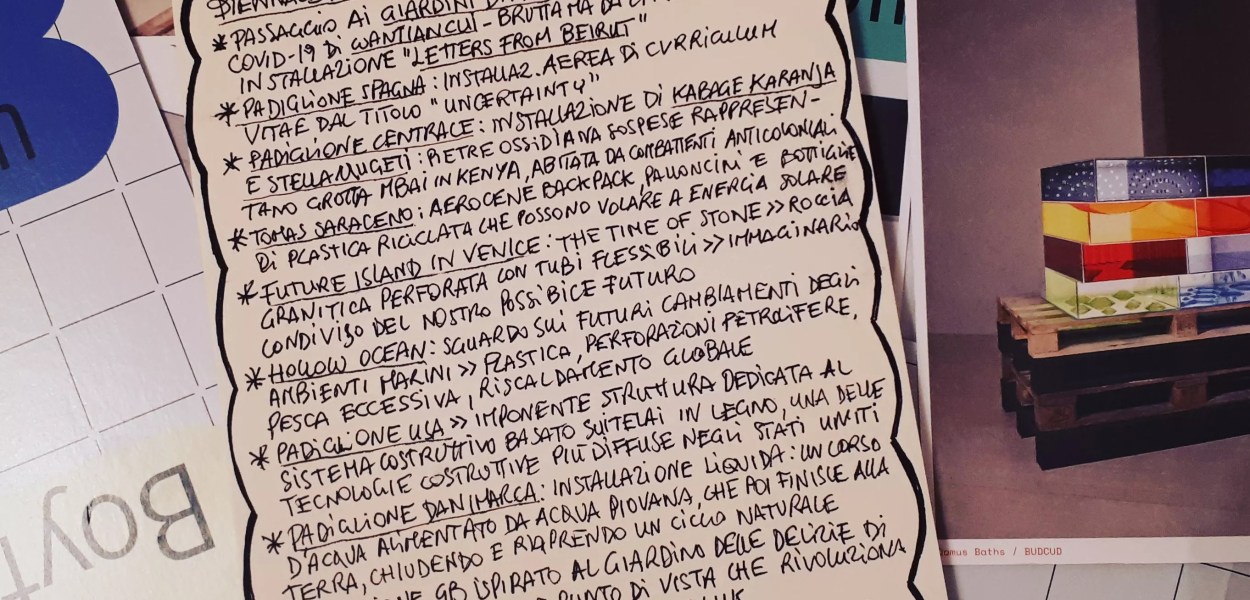 * PASSAGGIO AI GIARDINI
COVID-19 DI WANTIANCUI - BRUTTA MA DA
INSTALLAZIONE "LETTERS FROM BEIRUT"
* PADIGLIONE SPAGNA: INSTALLAZ. AEREA DI CURRICULUM
VITAE DAL TITOLO "UNCERTAINTY"
* PADIGLIONE CENTRALE: INSTALLAZIONE DI KABAGE KARANJA
E STELLA MUGETI: PIETRE OSSIDIANA SOSPESE RAPPRESEN-
TANO GROTTA MBAI IN KENYA, ABITATA DA COMBATTENTI ANTICOLONIALI
* TOMAS SARACENO: AEROCENE BACKPACK, PALLONCINI E BOTTIGLIE
DI PLASTICA RICICLATA CHE POSSONO VOLARE A ENERGIA SOLARE
* FUTURE ISLAND IN VENICE: THE TIME OF STONE >> ROCCIA
GRANITICA PERFORATA CON TUBI FLESSIBILI >> IMMAGINARIO
CONDIVISO DEL NOSTRO POSSIBILE FUTURO
* HOLLOW OCEAN: SGUARDO SUI FUTURI CAMBIAMENTI DEGLI
AMBIENTI MARINI >> PLASTICA, PERFORAZIONI PETROLIFERE,
PESCA ECCESSIVA, RISCALDAMENTO GLOBALE
* PADIGLIONE USA >> IMPONENTE STRUTTURA DEDICATA AL
SISTEMA COSTRUTTIVO BASATO SUI TELAI IN LEGNO, UNA DELLE
TECNOLOGIE COSTRUTTIVE PIÙ DIFFUSE NEGLI STATI UNITI
* PADIGLIONE DANIMARCA: INSTALLAZIONE LIQUIDA: UN CORSO
D'ACQUA ALIMENTATO DA ACQUA PIOVANA, CHE POI FINISCE ALLA
TERRA, CHIUDENDO E RIAPRENDO UN CICLO NATURALE
GB ISPIRATO AL GIARDINO DELLE DELIZIE DI
PUNTO DI VISTA CHE RIVOLUZIONA
Boyt
Domus Baths / BUDCUD